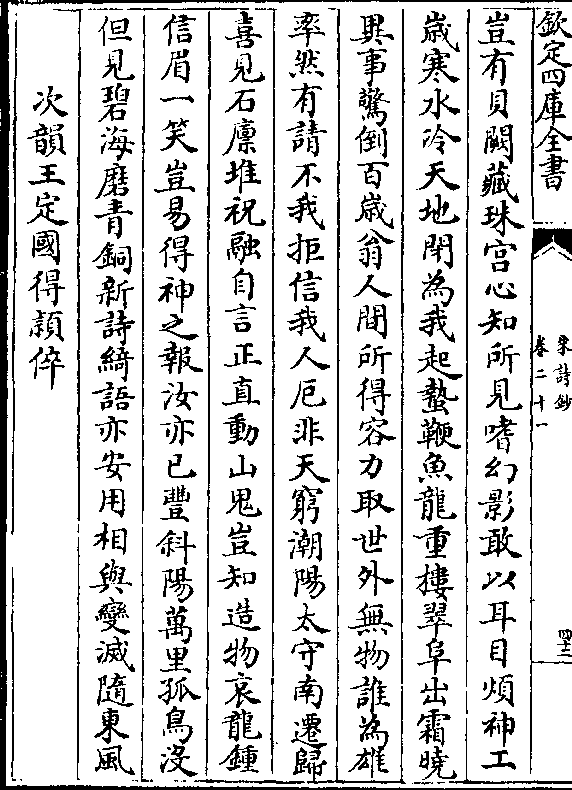 欽定四庫全書
宋詩鈔
卷二十一
豈有貝闕藏珠宮心知所見嗜幻影敢以耳目煩神工
歲寒水冷天地閉為我起蟄鞭魚龍重樓翠阜出霜曉
異事驚倒百歲翁人間所得容力取世外無物誰為雄
率然有請不我拒信我人厄非天窮潮陽太守南遷歸
喜見石廩堆祝融自言正直動山鬼豈知造物哀龍鍾
信眉一笑豈易得神之報汝亦已豐斜陽萬里孤鳥沒
但見碧海磨青銅新詩綺語亦安用相與變滅隨東風
次韻王定國得潁倅